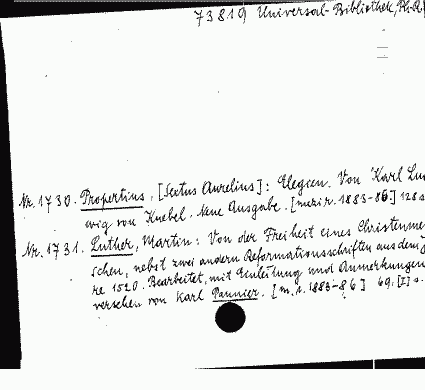 73819 Universal-Bibliothek, Ph. R.
Nr. 1730. Propertius, [Sextus Aurelius]: Elegien. Von Karl Lud
wig von Knebel. Neue Ausgabe. [1883-86] 128 s
Nr. 1731. Luther, Martin: Von der Freiheit eines Christenme
schen, nebst zwei andern Reformationsschriften aus dem
re 1520. Bearbeitet, mit Einleitung und Anmerkungen
versehen von Karl Pannier. [1883-86] 69, [1] s.